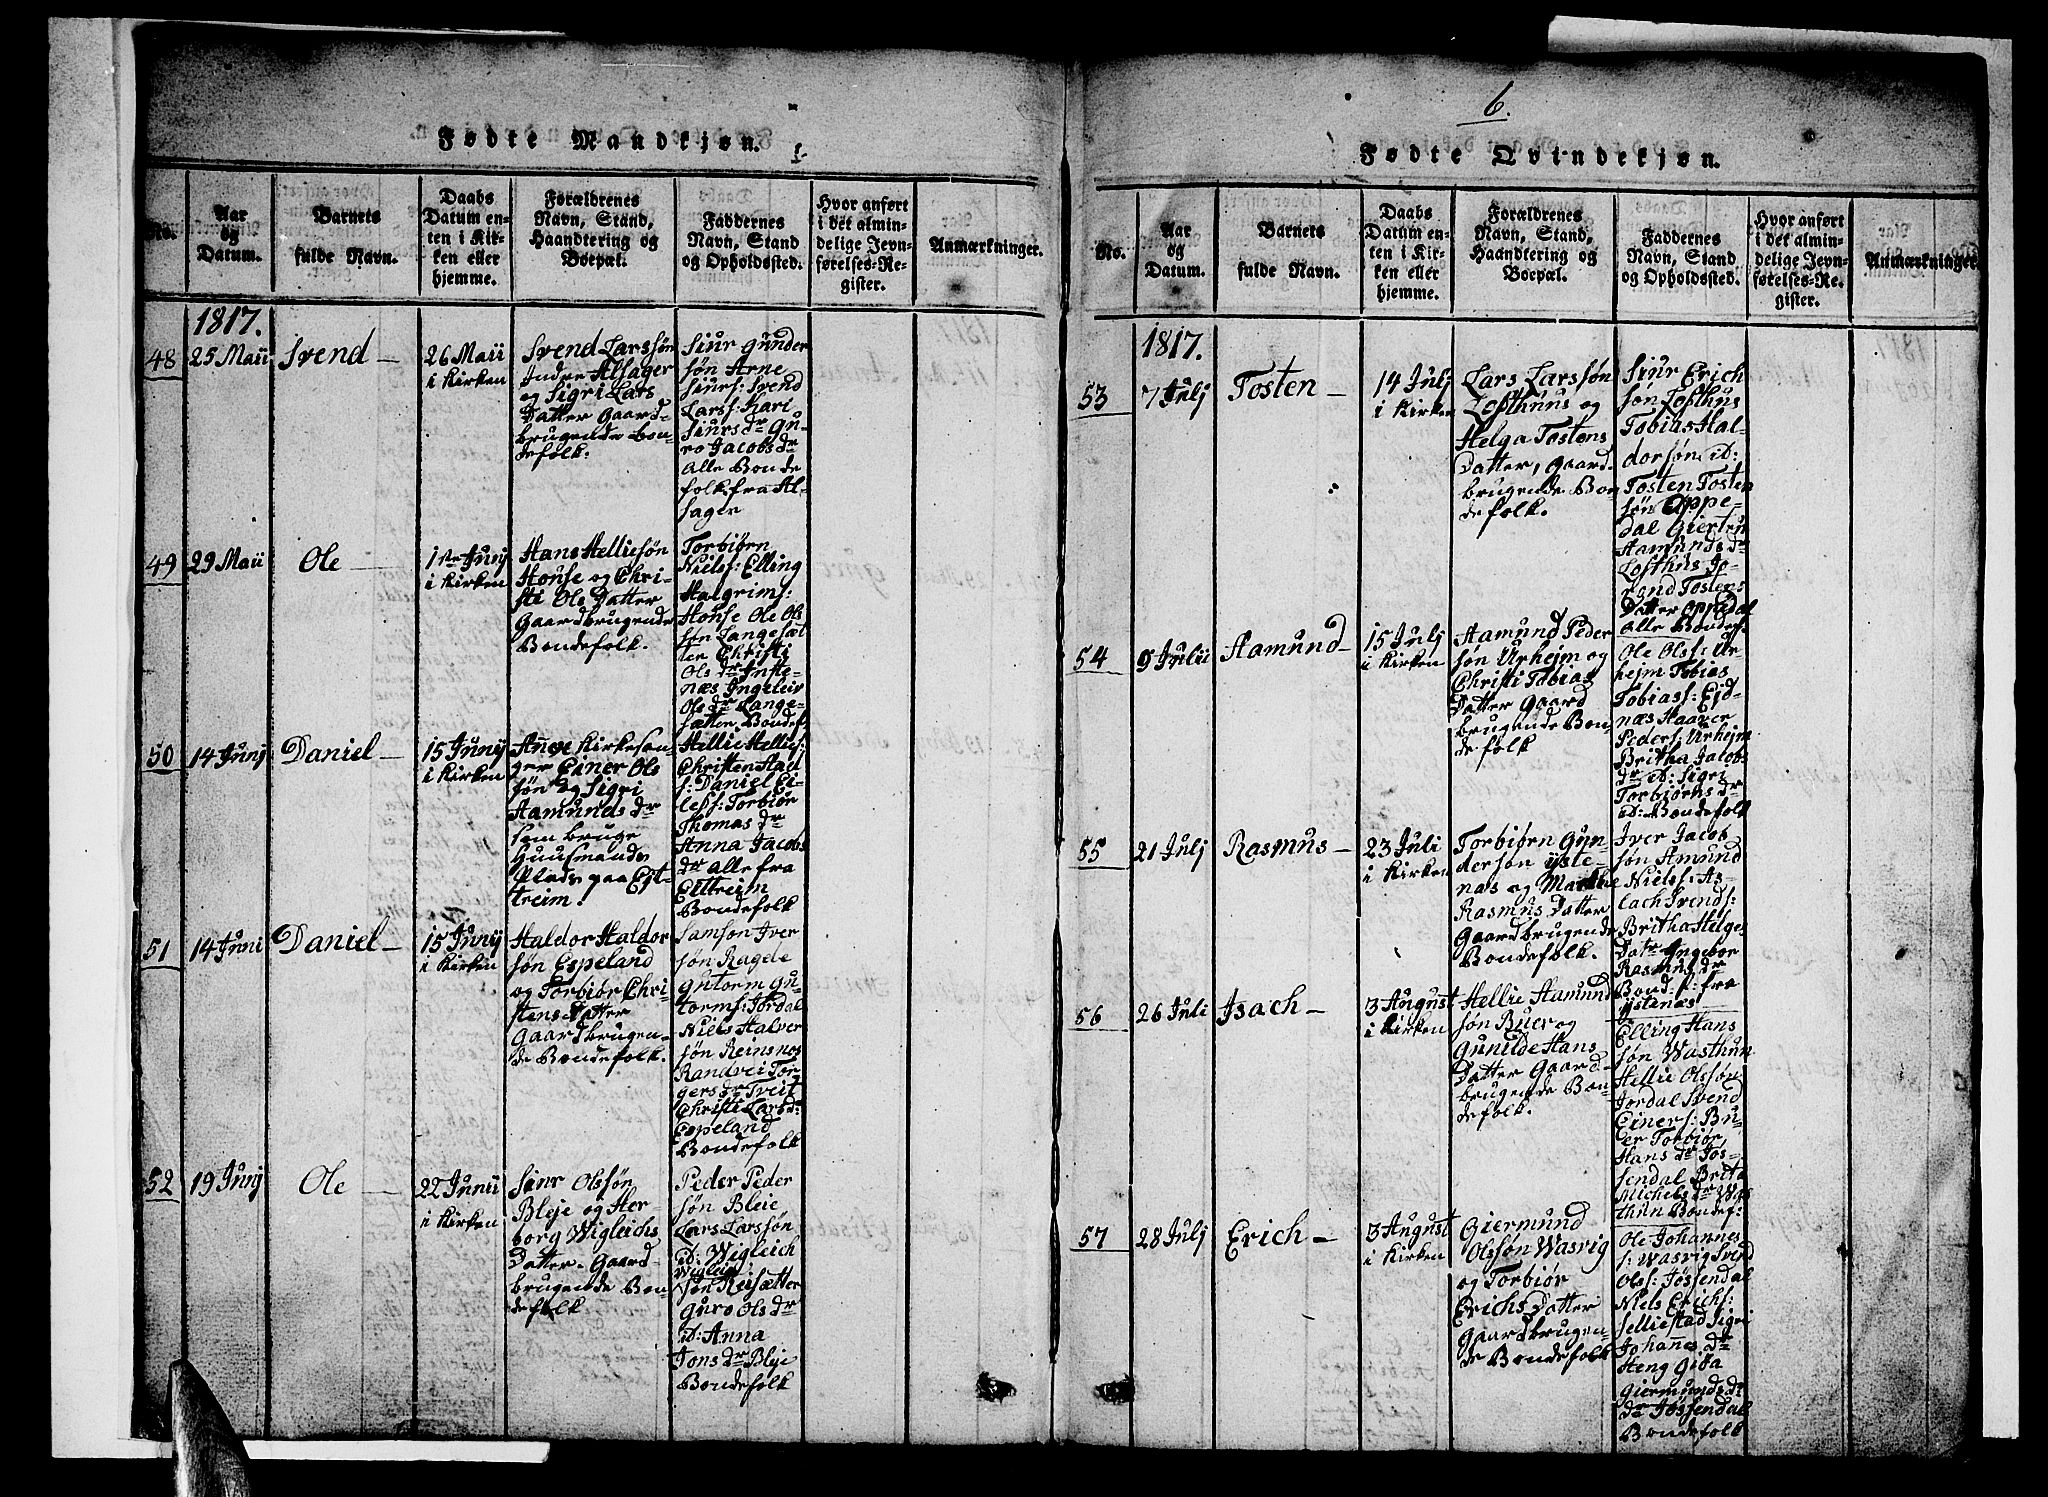 Fødte Mandkjøn.
No.
Aar
og
Datum.
Barnets
fulde Navn.
Daabs
Datum en-
ten i Kir-
ken eller
hjemme.
Forældrenes
Navn, Stand,
Haandtering og
Boepæl.
Faddernes
Navn, Stand
og Opholdssted.
Hvor anført
i det almin-
delige Jevn-
førelses-Re-
gister.
Anmærkninger.
1817.
48
25 Maii
Svend
26 Maii
i Kirken
Svend Larssøn
Indre Alsager
og Sigri Lars
Datter Gaard-
brugende Bon-
defolk.
Siur Gunder
søn Arne
Siurs: Svend
Larss: Kari
Siursdr Gu-
ro Jacobsdr
alle Bonde
folk fra Al-
sager
49
29 Maii
Ole
1ste Junij
i Kirken
Hans Helliesøn
House og Chri-
sti Ole Datter
Gaardbrugende
Bondefolk.
Torbiørn
Niels: Elling
Halgrims:
House Ole Ols
søn Langesæt
ter Christi
Olsdr Inste-
næs Ingeleiv
Olsdr Lange-
sætter Bondef.
50
14 Junij
Daniel
15 Junij
i Kirken
Kirkesan-
ger Einer Ols
søn og Sigri
Aamundsdr
som bruge
Huusmands
Plads paa Eit-
treim!
Hellie Hellies:
Christen Hall
s: Daniel Ei-
less: Torbiør
Thomasdr
Anna Jacobs
dr alle fra
Eittreim
Bondefolk
51
14 Juni
Daniel
15 Junij
i Kirken
Haldor Haldor
søn Espeland
og Torbiør Chri-
stens Datter
Gaardbrugen-
de Bondefolk.
Samson Iver
søn Ragde
Gutorm Gu-
torms: Jordal
Niels Halver
søn Reinsnos
Randvei Tor-
gersdr Tveit
Christi Larsd:
Espeland
Bondefolk
52
19 Junij
Ole
22 Junii
i Kirken
Siur Olssøn
Bleje og Her
borg Wigleichs
Datter. Gaard-
brugende Bon-
defolk
Peder Peder
søn Bleie
Lars Larssøn
id: Wigleich
Wigleich
søn Reisætter
Guro Olsdr
id: Anna
Jonsdr Bleje
Bondefolk
6.
Fødte Qvindekjøn.
No.
Aar
og
Datum.
Barnets
fulde Navn.
Daabs
Datum en-
ten i Kir-
ken eller
hjemme.
Forældrenes
Navn, Stand,
Haandtering og
Boepæl.
Faddernes
Navn, Stand
og Opholdssted.
Hvor anført
i det almin-
delige Jevn-
førelses-Re-
gister.
Anmærkninger.
1817.
53
7 Julj
Tosten
14 Julj
i Kirken
Lars Larssøn
Lofthuus og
Helga Tostens
Datter, Gaard-
brugende Bon
defolk.
Siur Erich
søn Lofthus
Tobias Hal-
dorsøn id:
Tosten Tosten
søn Oppe-
dal Giertru
Aamundsdr
Lofthus Jo-
rand Tostens
Datter Oppedal
alle Bondef.
54
9 Julii
Aamund
15 Julj
i Kirken
Aamund Peder
søn Urheim og
Christi Tobias
Datter Gaard
brugende Bon-
defolk
Ole Olss: Ur-
hejm Tobias
Tobiass: Eid-
næs Haaver
Peders: Urhejm
Britha Jacobs
dr id: Sigri
Torbiørnsdr
id: Bondefolk
55
21 Julj
Rasmus
23 Juli
i Kirken
Torbiørn Gun
dersøn Yste-
næs og Marthe
Rasmus Datter
Gaardbrugende
Bondefolk.
Iver Jacob
søn Amund
Niels: As-
lach Svends:
Britha Helges
Datr Ingebor
Rasmusdr
Bond: f: fra
Ystenæs
56
26 Juli
Isach
3 August
i Kirken
Hellie Aamund
søn Buer og
Gunilde Hans
Datter Gaard-
brugende Bon-
defolk.
Elling Hans
søn Wasthun
Hellie Olssøn
Jordal Svend
Einers: Bu-
er Torbiør
Hansdr Jos-
sendal Brita
Michelsdr Was
thun Bondef:
57
28 Julj
Erich
3 August
i Kirken
Giermund
Olssøn Wasvig
og Torbiør
Erichs Datter
Gaardbrugen-
de Bondefolk
Ole Johannes
s: Wasvig Svend
Olss: Jøssendal
Niels Erichs:
Selliestad Sigri
Johannesdr
Steng Gida
Giermundsd:
dr Jøssendal
Bondefolk